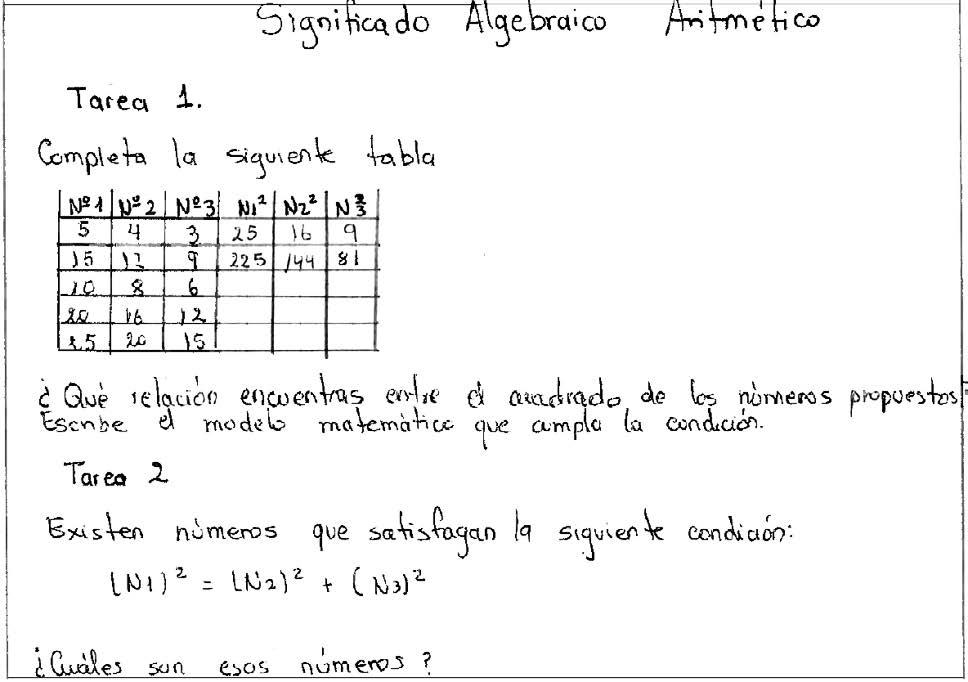 Significado Algebraico Aritmético
Tarea 1.
Completa la siguiente tabla
Nº1 Nº2 Nº3 N1² N2² N3²
5 4 3 25 16 9
15 12 9 225 144 81
10 8 6
20 16 12
25 20 15
¿Qué relación encuentras entre el cuadrado de los números propuestos?
Escribe el modelo matemático que cumpla la condición.
Tarea 2
Existen números que satisfagan la siguiente condición:
(N1)² = (N2)² + (N3)²
¿Cuáles son esos números?